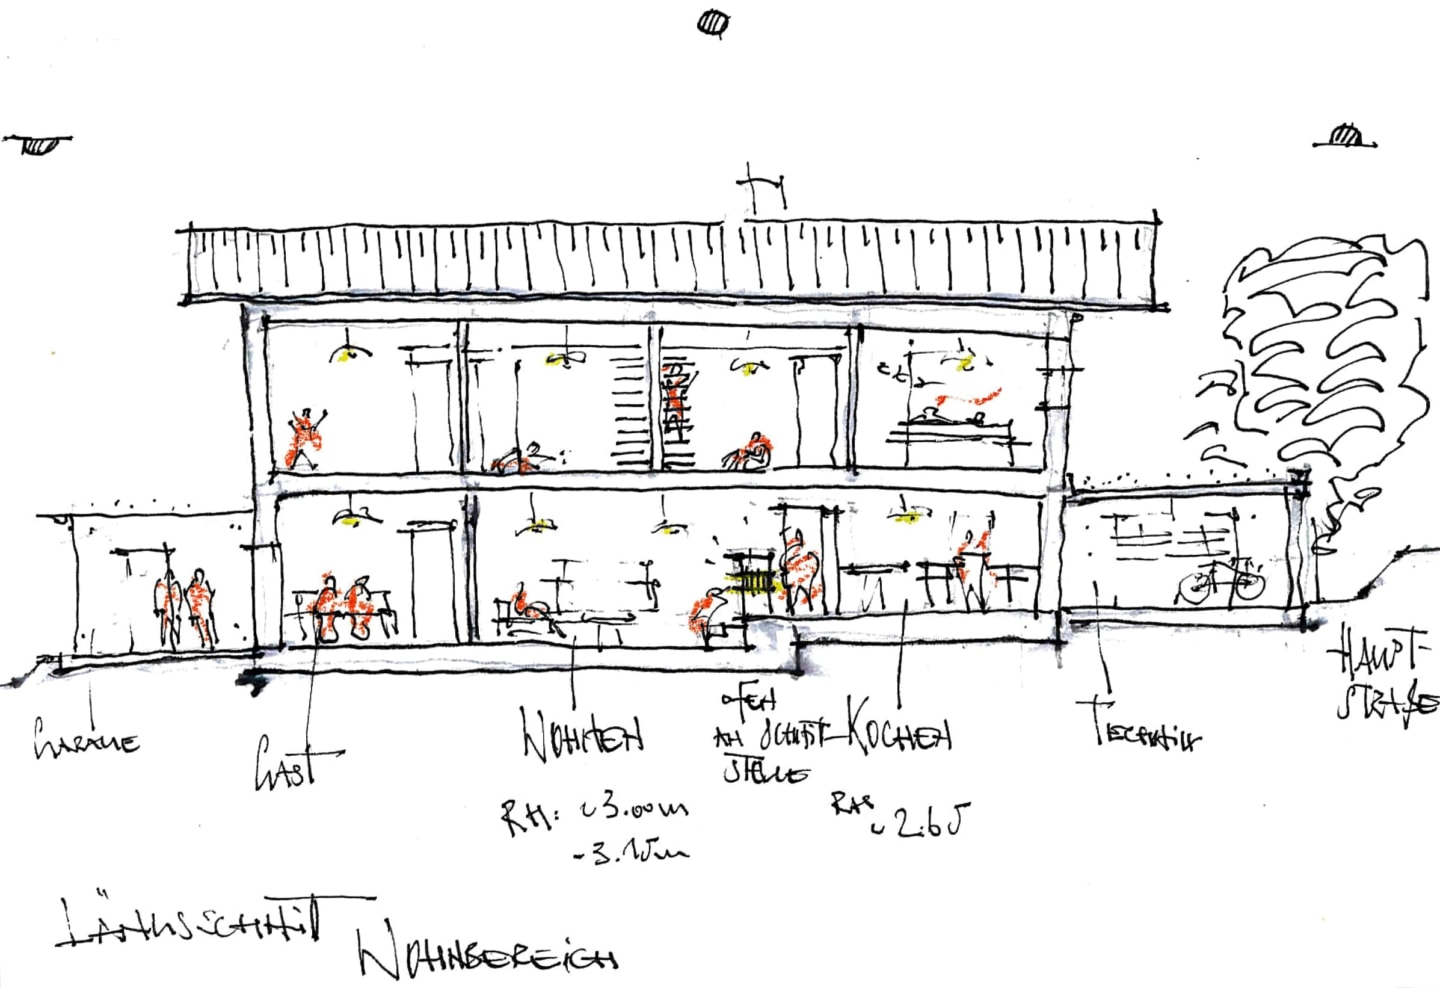 GARAGE
GAST
WOHNEN
RH: ~3.00m
-3.15m
OFEN
AN SCHNITT-
STELLE
KOCHEN
~2.65
TECHNIK
HAUPT-
STRAßE
LÄNGSSCHNITT
WOHNBEREICH